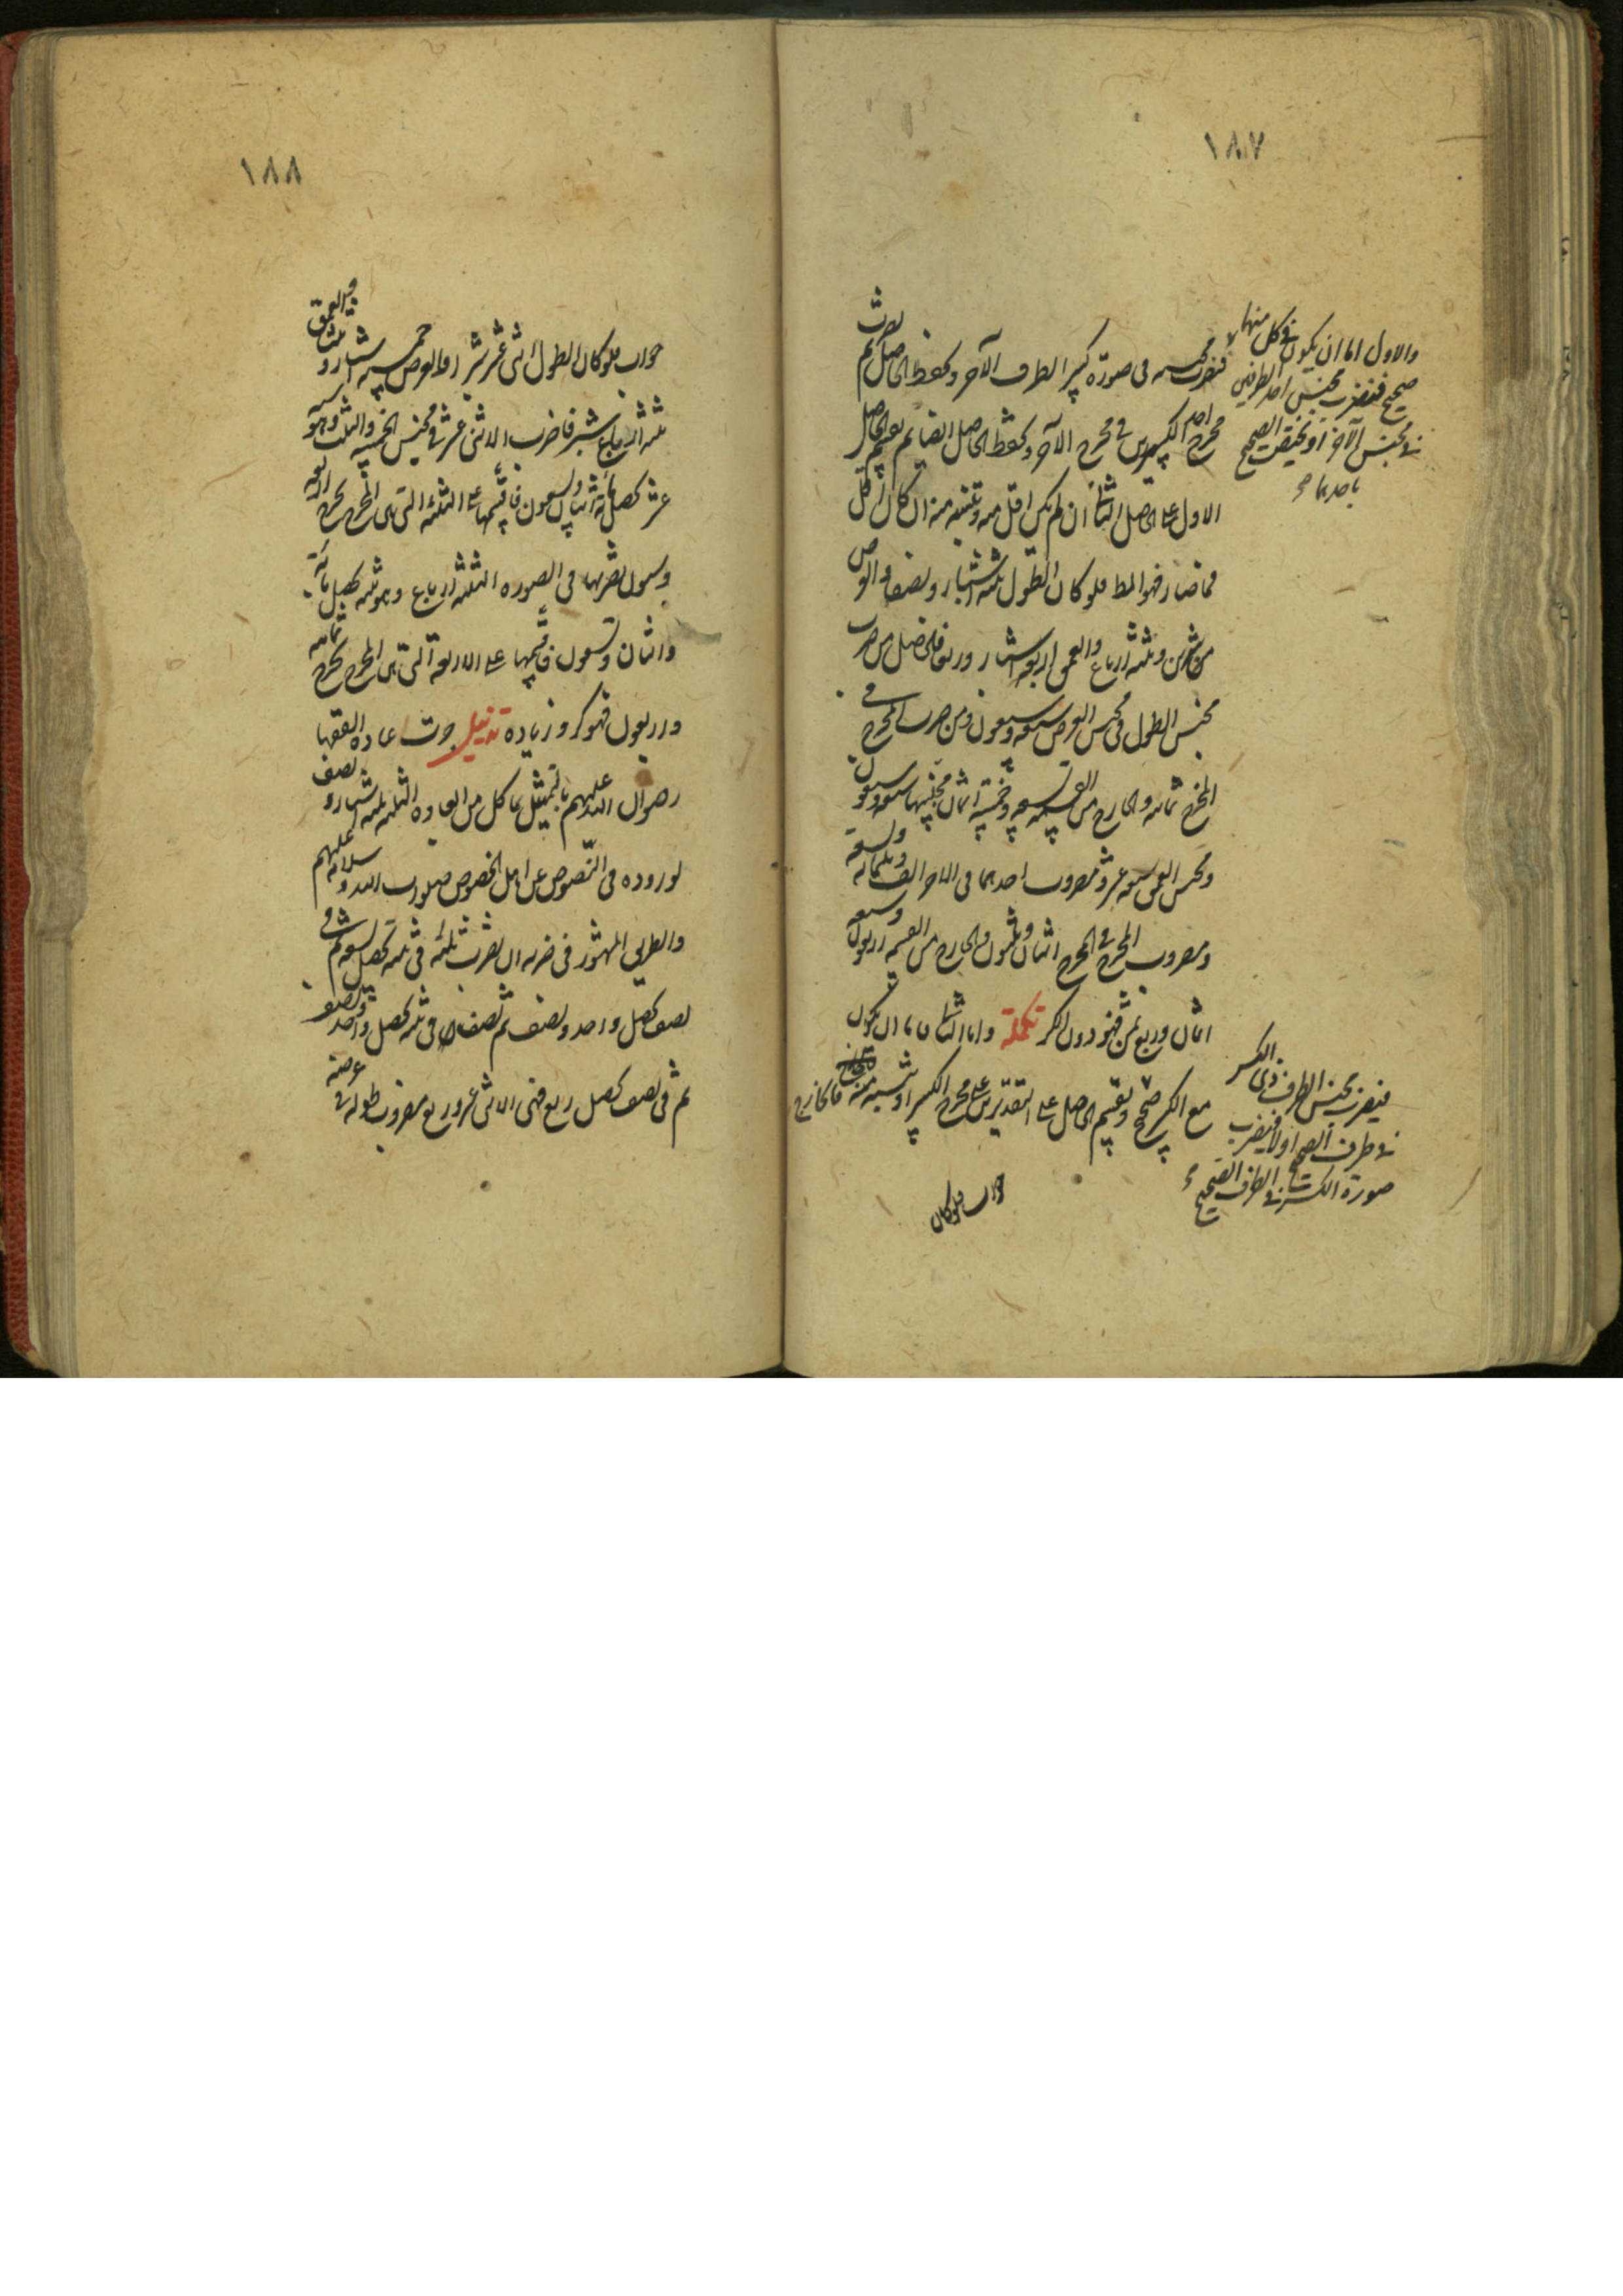 ١٨٧
والاول اما ان يكون في كل منهما
صحيح فنضرب مجنس احد الطرفين
في مجنس الآخر او يختص الصحيح
باحدهما
فنضرب مجنسه في صورة كسر الطرف الآخر ونحفظ الحاصل ثم نضرب
مخرج احد الكسرين في مخرج الآخر ونحفظ الحاصل ايضا ثم نقسم الحاصل
الاول على الحاصل الثاني ان لم يكن اقل منه وننسبه منه ان كان اقل
فما صار فهو المط فلو كان الطول ثلثة اشبار ونصفا والعرض
شبرين وثلثة ارباع والعمق اربعة اشبار وربعا فالحاصل من ضرب
مجنس الطول في مجنس العرض سبعة وسبعون ومن ضرب المخرج في
المخرج ثمانية والخارج من القسمة تسعة وخمسة اثمان مجنسها سبعة وسبعون
ومجنس العمق سبعة عشر ومضروب احدهما في الاخر الف وثلثمائة وتسعة
ومضروب المخرج في المخرج اثنان وثلثون والخارج من القسمة اربعون وسبعة
اثمان وربع ثمن فهو دون الكر تكملة واما الثاني فاما ان يكون
مع الكسر صحيح ونقسم الحاصل على التقديرين على مخرج الكسر او ننسبه منه فالخارج
فنضرب مجنس الطرف ذي الكسر
في طرف الصحيح اولا فنضرب
صورة الكسر في الطرف الصحيح
جواب فلو كان
١٨٨
جواب فلو كان الطول اثنى عشر شبرا والعرض خمسة اشبار وثلثا والعمق
ثلثة ارباع شبر فاضرب الاثنى عشر في مجنس الخمسة والثلث وهو ستة
عشر يحصل مائة واثنان وتسعون فاقسمها على الثلثة التي هي المخرج يخرج اربعة
وستون نضربها في الصورة الثلثة ارباع وهو ثلثة يحصل مائة
واثنان وتسعون فاقسمها على الاربعة التي هي المخرج يخرج ثمانية
واربعون فهو كر وزيادة تذييل جرت عادة الفقها
رضوان الله عليهم بالتمثيل بما كل من ابعاده الثلثة ثلثة اشبار ونصف
لوروده في النصوص عن اهل الخصوص صلوات الله وسلامه عليهم
والطريق المشهور في ضربه ان نضرب ثلثة في ثلثة يحصل تسعة ثم في
نصف يحصل واحد ونصف ثم نصفا في ثلثة يحصل واحد ونصف
ثم في نصف يحصل ربع فهي اثنى عشر وربع مضروب طوله في عرضه